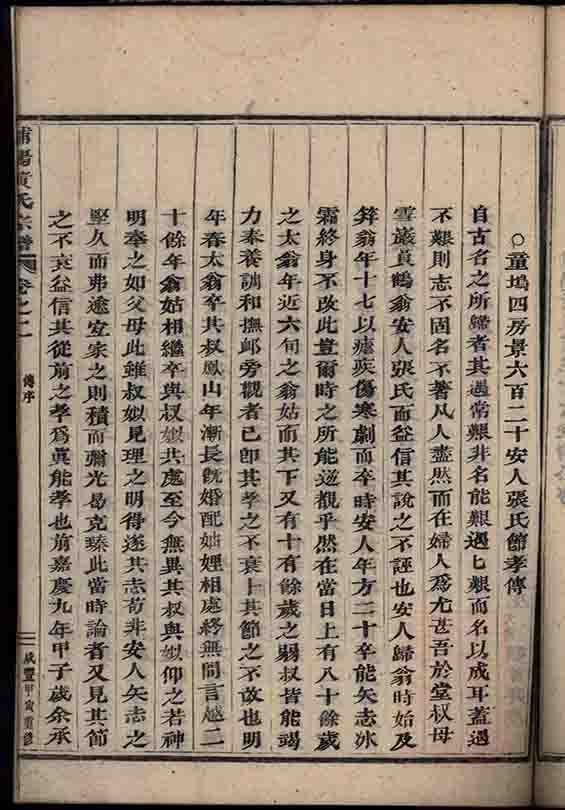 ○童塢四房景六百二十安人張氏節孝傳
自古名之所歸者其遇常艱非名能艱遇乚艱而名以成耳蓋遇
不艱則志不固名不著凡人盡然而在婦人為尤甚吾於堂叔母
雪巖員鶴翁安人張氏而益信其說之不誣也安人歸翁時始及
笄翁年十七以瘧疾傷寒劇而卒時安人年方二十卒能矢志冰
霜終身不改此豈爾時之所能逆覩乎然在當日上有八十餘歲
之太翁年近六旬之翁姑而其下又有十有餘歲之弱叔皆能竭
力奉養調和撫卹旁觀者已即其孝之不衰卜其節之不改也明
年春太翁卒其叔鳳山年漸長既婚配妯娌相處終無間言越二
十餘年翁姑相繼卒與叔姒共處至今無異其叔與姒仰之若神
明奉之如父母此雖叔姒見理之明得遂其志苟非安人矢志之
堅久而弗逾宜家之則積而彌光曷克臻此當時論者又見其節
之不衰益信其從前之孝為真能孝也前嘉慶九年甲子歲余承
浦陽黃氏宗譜
卷之二
傳序
咸豐甲寅重修